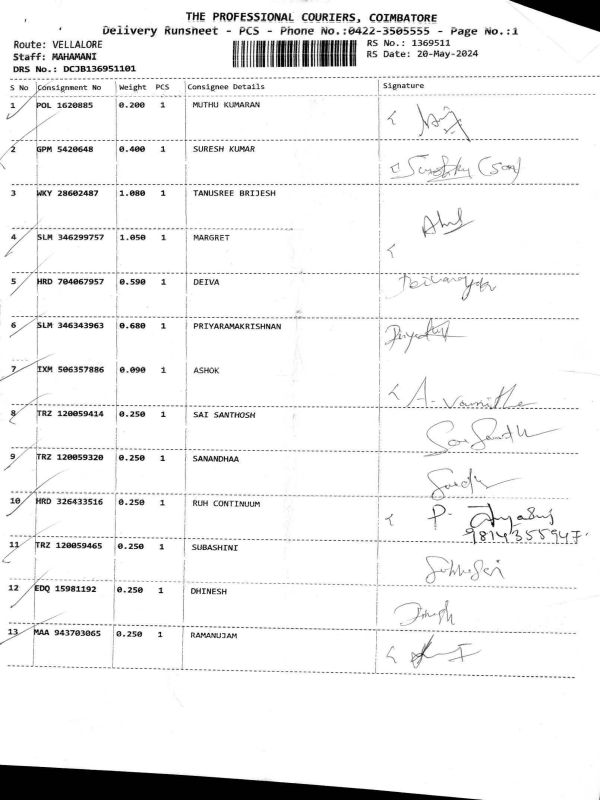 THE PROFESSIONAL COURIERS, COIMBATORE
Delivery Runsheet - PCS - Phone No.:0422-3505555 - Page No.:1
Route: VELLALORE
RS No.: 1369511
Staff: MAHAMANI
RS Date: 20-May-2024
DRS No.: DCJB136951101
S No Consignment No Weight PCS Consignee Details Signature
1 POL 1620885 0.200 1 MUTHU KUMARAN
2 GPM 5420648 0.400 1 SURESH KUMAR
(son)
3 WKY 28602487 1.080 1 TANUSREE BRIJESH
4 SLM 346299757 1.050 1 MARGRET
5 HRD 704067957 0.590 1 DEIVA
6 SLM 346343963 0.680 1 PRIYARAMAKRISHNAN
7 IXM 506357886 0.090 1 ASHOK
A. Vanitha
8 TRZ 120059414 0.250 1 SAI SANTHOSH
9 TRZ 120059320 0.250 1 SANANDHAA
10 HRD 326433516 0.250 1 RUH CONTINUUM
P.
9814355947.
11 TRZ 120059465 0.250 1 SUBASHINI
12 EDQ 15981192 0.250 1 DHINESH
13 MAA 943703065 0.250 1 RAMANUJAM